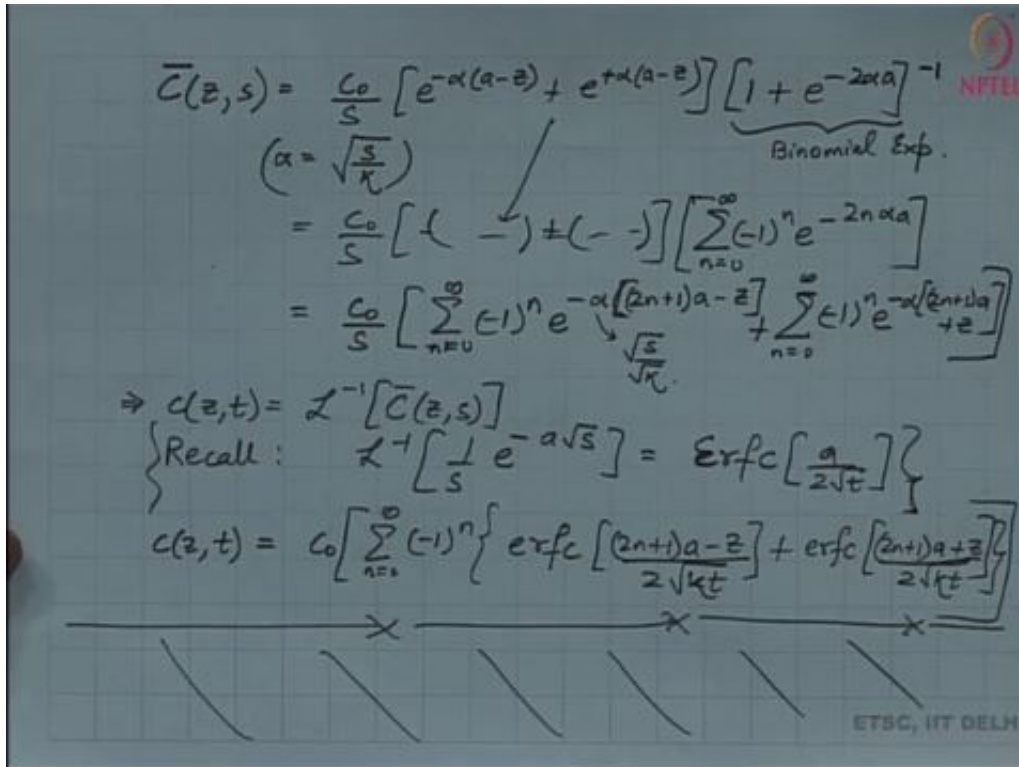 C̅(z,s) = c₀/s [e^{-α(a-z)} + e^{+α(a-z)}] [1 + e^{-2αa}]^{-1}
NPTEL
Binomial Exp.
(α = √(s/κ))
= c₀/s [( –) ± (– –)] [∑_{n=0}^{∞} (-1)^n e^{-2nαa}]
= c₀/s [∑_{n=0}^{∞} (-1)^n e^{-α[(2n+1)a-z]} + ∑_{n=0}^{∞} (-1)^n e^{-α[(2n+1)a+z]}]
√s/√κ.
⇒ c(z,t) = ℒ^{-1}[C̅(z,s)]
{Recall : ℒ^{-1}[1/s e^{-a√s}] = Erfc[a/(2√t)]}
c(z,t) = c₀[∑_{n=0}^{∞} (-1)^n {erfc[((2n+1)a-z)/(2√(κt))] + erfc[((2n+1)a+z)/(2√(κt))]}]
ETSC, IIT DELH